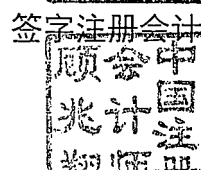 签字注册会计
中国注册
会计师
顾兆翔